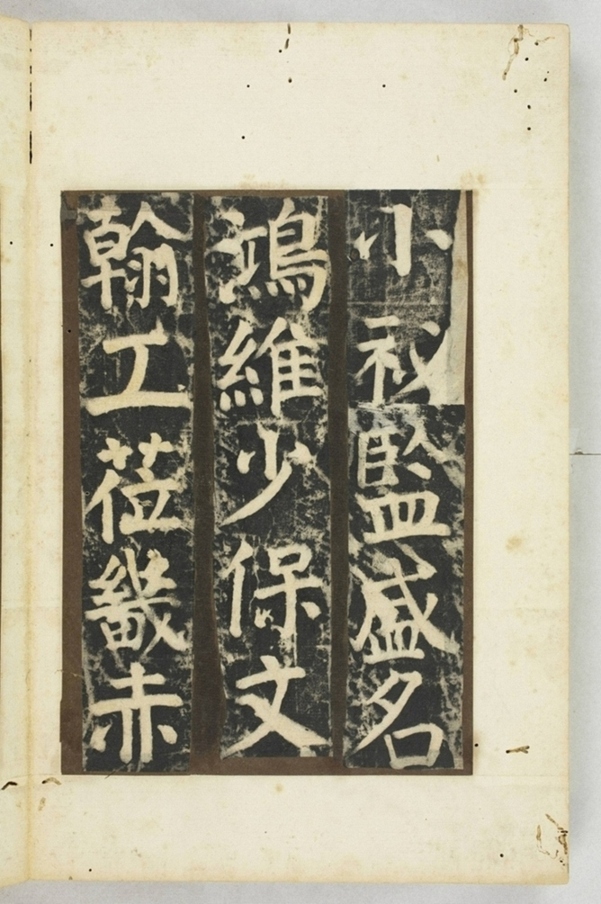 小祕監盛名
鴻維少保文
翰工莅畿赤